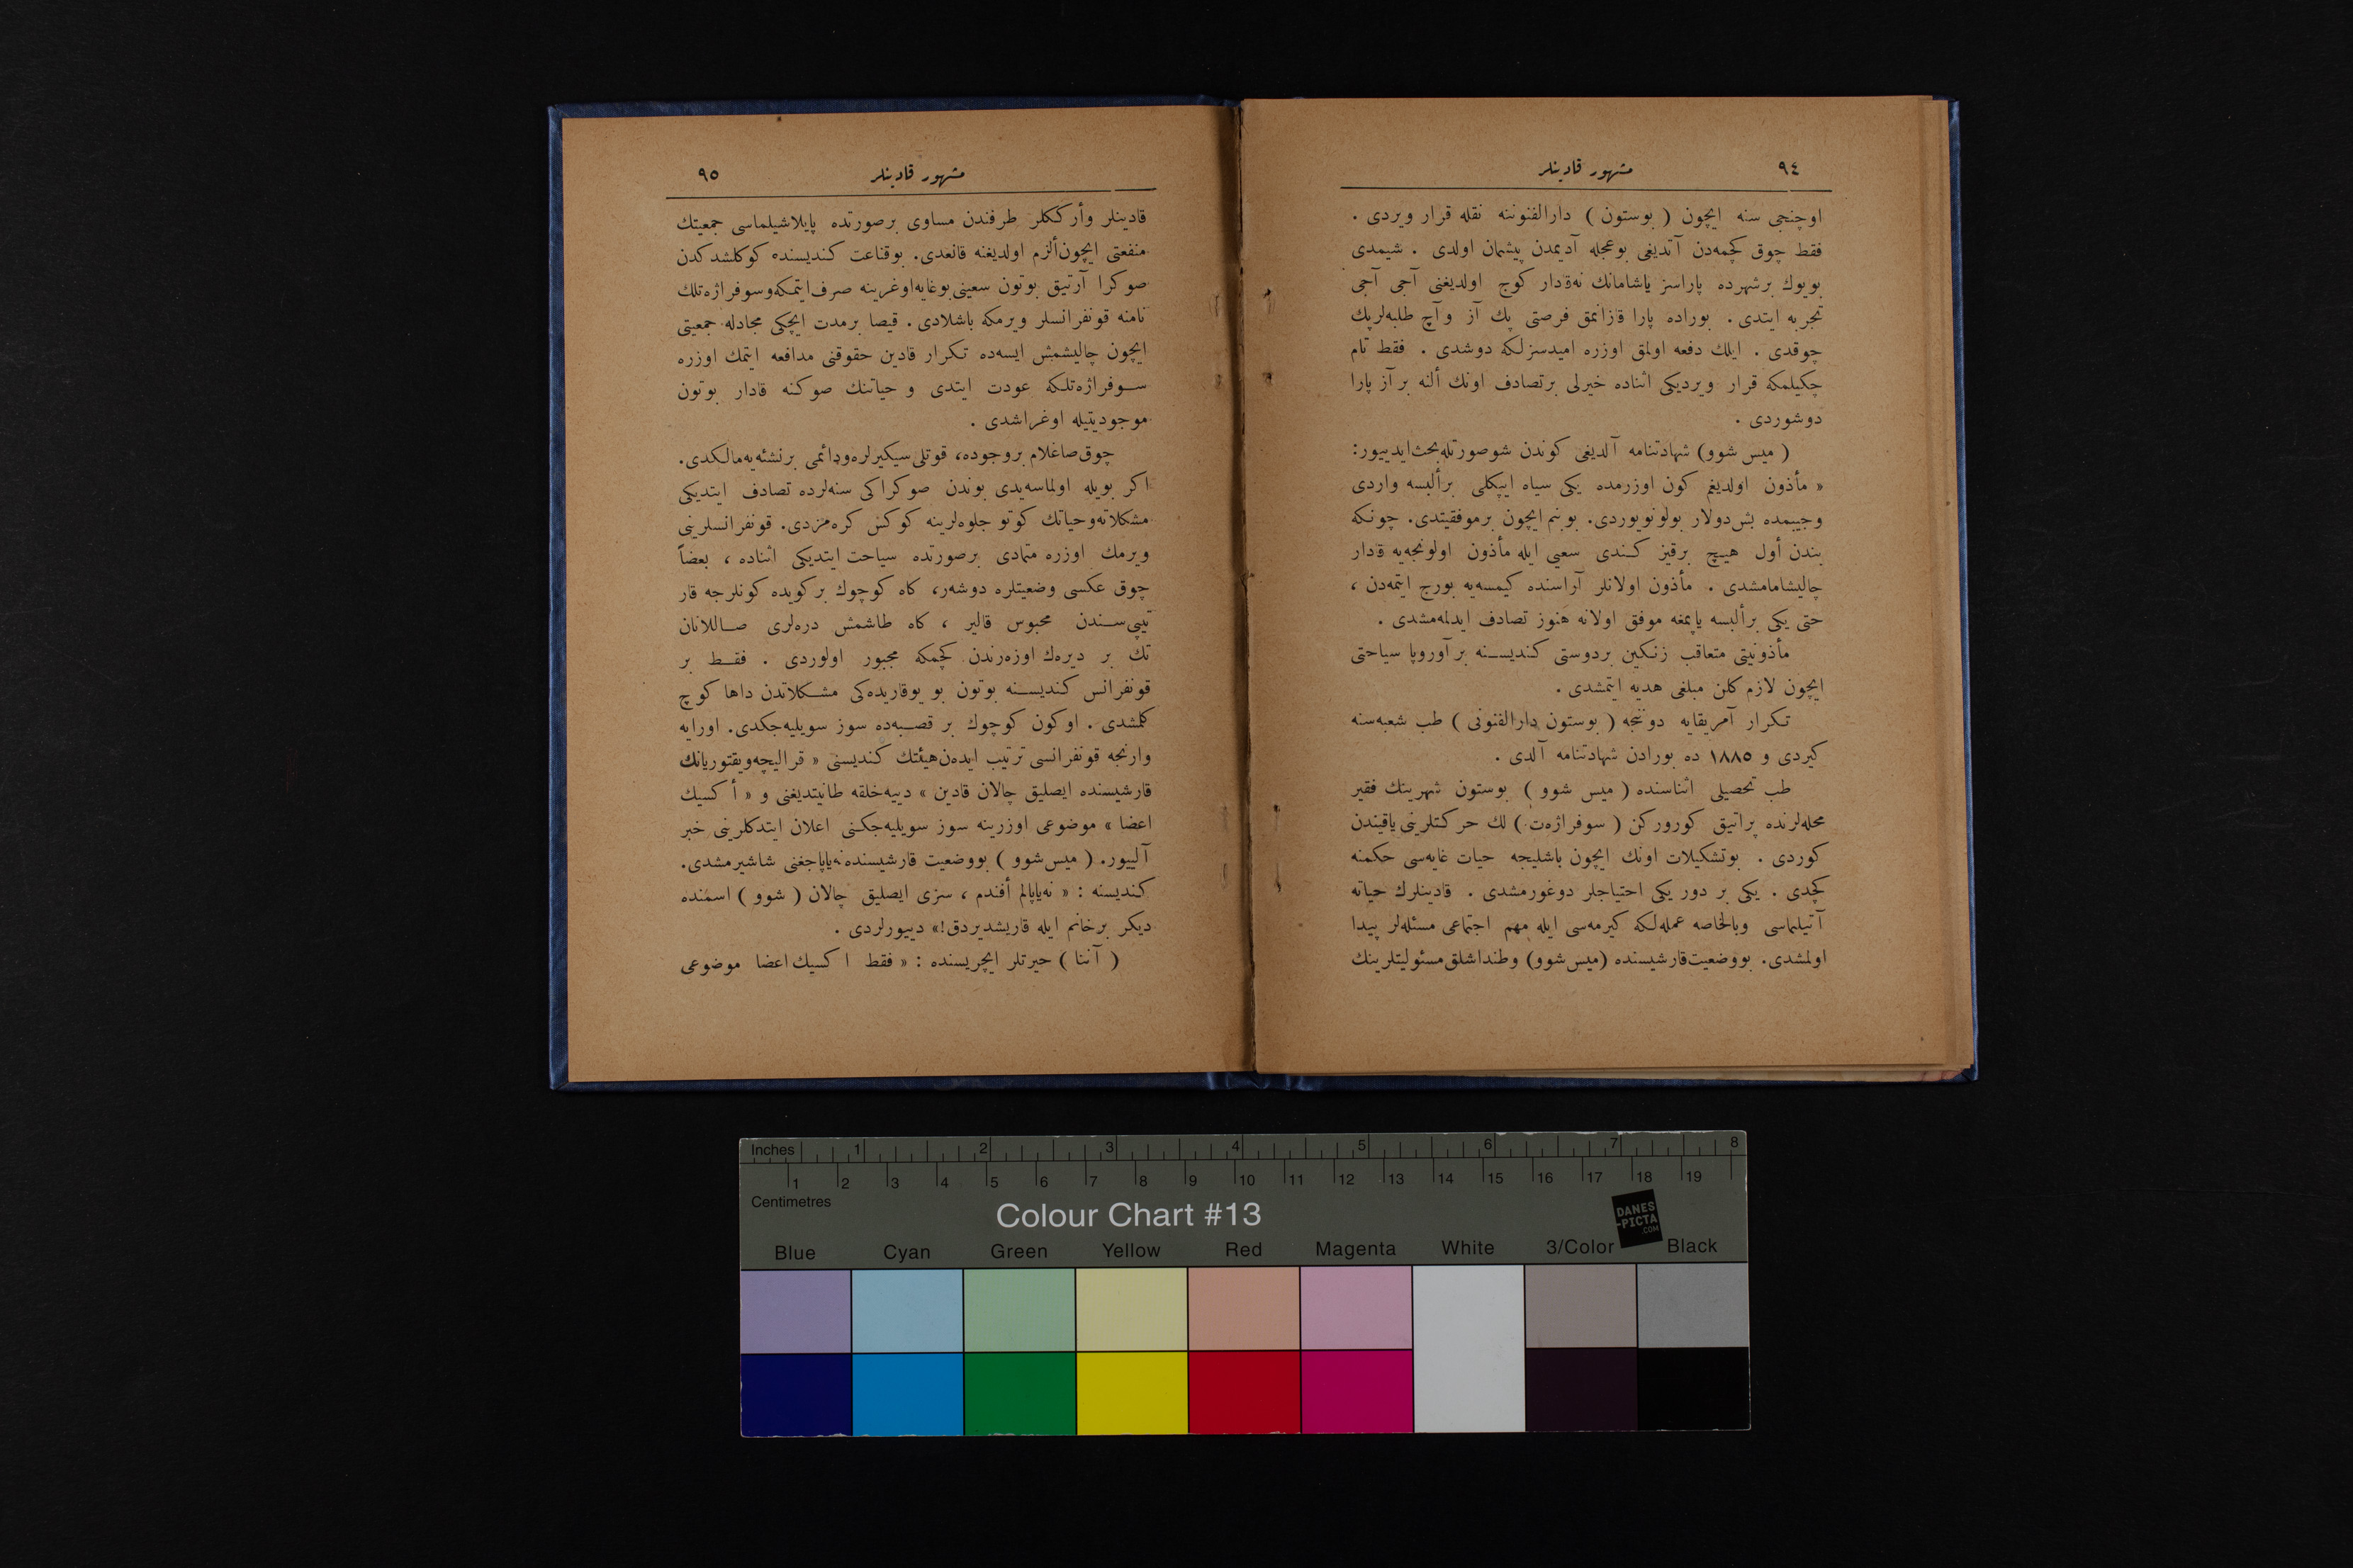 ٩٤
مشهور قادینلر
اوچنجی سنه ایچون ( بوستون ) دارالفنوننه نقله قرار ویردی .
فقط چوق کچمه‌دن آتدیغی بوعجله آدیمدن پیشمان اولدی . شیمدی
بویوك برشهرده پاراسز یاشامانك نه‌قدار کوج اولدیغنی آجی آجی
تجربه ایتدی . بوراده پارا قازانمق فرصتی پك آز و آچ طلبه‌لرپك
چوقدی . ایلك دفعه اولمق اوزره امیدسزلکه دوشدی . فقط تام
چکیلمکه قرار ویردیکی اثناده خیرلی برتصادف اونك ألنه برآز پارا
دوشوردی .
( میس شوو ) شهادتنامه آلدیغی کوندن شوصورتله بحث ایدییور:
« مأذون اولدیغم کون اوزرمده یکی سیاه ایپکلی برألبسه واردی
وجیبمده بش دولار بولونویوردی. بونم ایچون برموفقیتدی. چونکه
بندن أول هیچ برقیز کندی سعیی ایله مأذون اولونجه‌یه قادار
چالیشامامشدی . مأذون اولانلر آراسنده کیمسه‌یه بورج ایتمه‌دن ،
حتی یکی برألبسه یاپمغه موفق اولانه هنوز تصادف ایدلمه‌مشدی .
مأذونیتی متعاقب زنکین بردوستی کندیسنه برآوروپا سیاحتی
ایچون لازم کلن مبلغی هدیه ایتمشدی .
تکرار آمریقایه دوننجه ( بوستون دارالفنونی ) طب شعبه‌سنه
کیردی و ١٨٨٥ ده بورادن شهادتنامه آلدی .
طب تحصیلی اثناسنده ( میس شوو ) بوستون شهرینك فقیر
محله‌لرنده پراتیق کورورکن ( سوفراژه‌ت ) لك حرکتلرینی یاقیندن
کوردی . بوتشکیلات اونك ایچون باشلیجه حیات غایه‌سی حکمنه
کچدی . یکی بر دور یکی احتیاجلر دوغورمشدی . قادینلرك حیاته
آتیلماسی وبالخاصه عمله‌لکه کیرمه‌سی ایله مهم اجتماعی مسئله‌لر پیدا
اولمشدی. بووضعیت قارشیسنده (میس شوو) وطنداشلق مسئولیتلرینك
٩٥
مشهور قادینلر
قادینلر وأرککلر طرفندن مساوی برصورتده پایلاشیلماسی جمعیتك
منفعتی ایچون ألزم اولدیغنه قانعدی. بوقناعت کندیسنده کوکلشدکدن
صوکرا آرتیق بوتون سعینی بوغایه اوغرینه صرف ایتمکه وسوفراژه‌تلك
نامنه قونفرانسلر ویرمکه باشلادی . قیصا برمدت ایچکی مجادله جمعیتی
ایچون چالیشمش ایسه‌ده تکرار قادین حقوقنی مدافعه ایتمك اوزره
سوفراژه‌تلکه عودت ایتدی و حیاتنك صوکنه قادار بوتون
موجودیتیله اوغراشدی .
چوق صاغلام بروجوده، قوتلی سیکیرلره ودائمی برنشئه‌یه مالکدی.
اکر بویله اولماسه‌یدی بوندن صوکراکی سنه‌لرده تصادف ایتدیکی
مشکلاته وحیاتك کوتو جلوه‌لرینه کوکس کره‌مزدی. قونفرانسلرینی
ویرمك اوزره متمادی برصورتده سیاحت ایتدیکی اثناده ، بعضاً
چوق عکسی وضعیتلره دوشه‌ر، کاه کوچوك برکویده کونلرجه قار
تیپی‌سندن محبوس قالیر ، کاه طاشمش دره‌لری صاللانان
تك بر دیره‌ك اوزه‌رندن کچمکه مجبور اولوردی . فقط بر
قونفرانس کندیسنه بوتون بو یوقاریده‌کی مشکلاتدن داها کوچ
کلمشدی . اوکون کوچوك بر قصبه‌ده سوز سویلیه‌جکدی. اورایه
وارنجه قونفرانسی ترتیب ایده‌ن هیئتك کندیسنی « قرالیچه ویقتوریانك
قارشیسنده ایصلیق چالان قادین » دییه خلقه طانیتدیغنی و « أکسیك
اعضا » موضوعی اوزرینه سوز سویلیه‌جکنی اعلان ایتدکلرینی خبر
آلییور. ( میس شوو ) بووضعیت قارشیسنده نه‌یاپاجغنی شاشیرمشدی.
کندیسنه : « نه‌یاپالم أفندم ، سزی ایصلیق چالان ( شوو ) اسمنده
دیکر برخانم ایله قاریشدیردق!» دییورلردی .
( آننا ) حیرتلر ایچریسنده : « فقط اکسیك اعضا موضوعی
Inches 1 2 3 4 5 6 7 8
1 2 3 4 5 6 7 8 9 10 11 12 13 14 15 16 17 18 19
Centimetres
Colour Chart #13
DANES
-PICTA
.COM
Blue Cyan Green Yellow Red Magenta White 3/Color Black